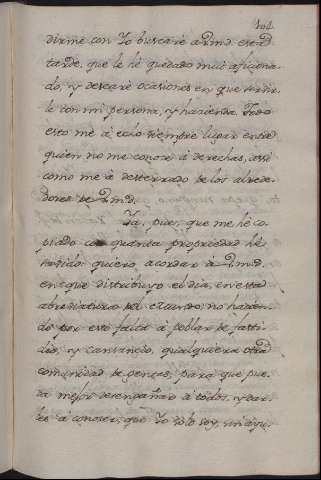 104
dirme con Yo buscaré a Vmd. esta
tarde, que le hé quedado mui aficiona-
do, y deseare ocasiones en que servir-
le con mi persona, y hacienda. Todo
esto me á echo siempre lugar entre
quien no me conoce á derechas, assi
como me á desterrado de los alrede-
dores de Vmd.
Ya, pues, que me hé co-
piado con quanta propriedad hé
podido: quiero acordar á Vmd.
en que distribuyo el dia, en esta
abreviatura del Mundo, no hacien-
do por esto falta á poblar de fasti-
dio, y cansancio, qualquiera otra
comunidad de gentes, para que pue-
da mejor desengañar á todos, y dar-
les á conocer, que Yo solo soy, sin ayu-